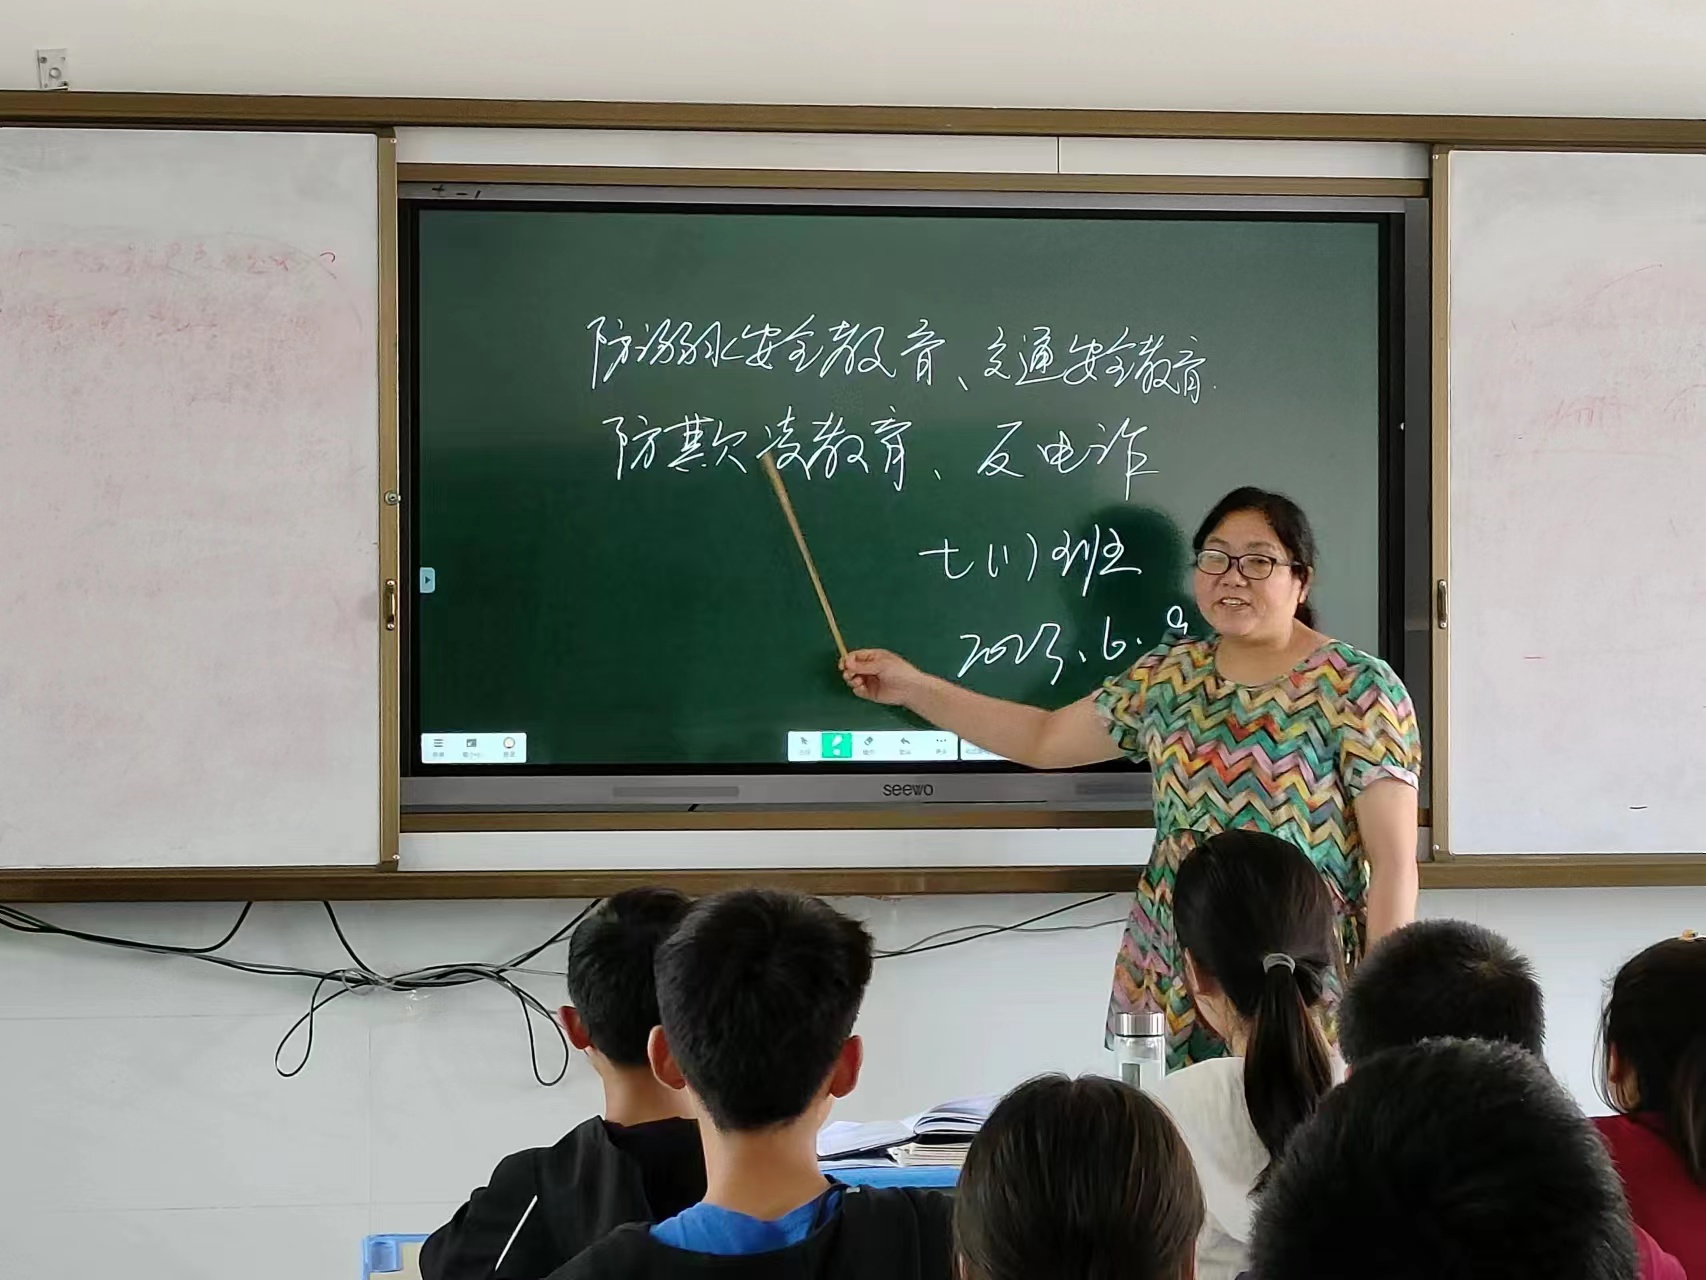 防溺水安全教育、交通安全教育
防欺凌教育、反电诈
七(1)班
2023.6.9
seewo